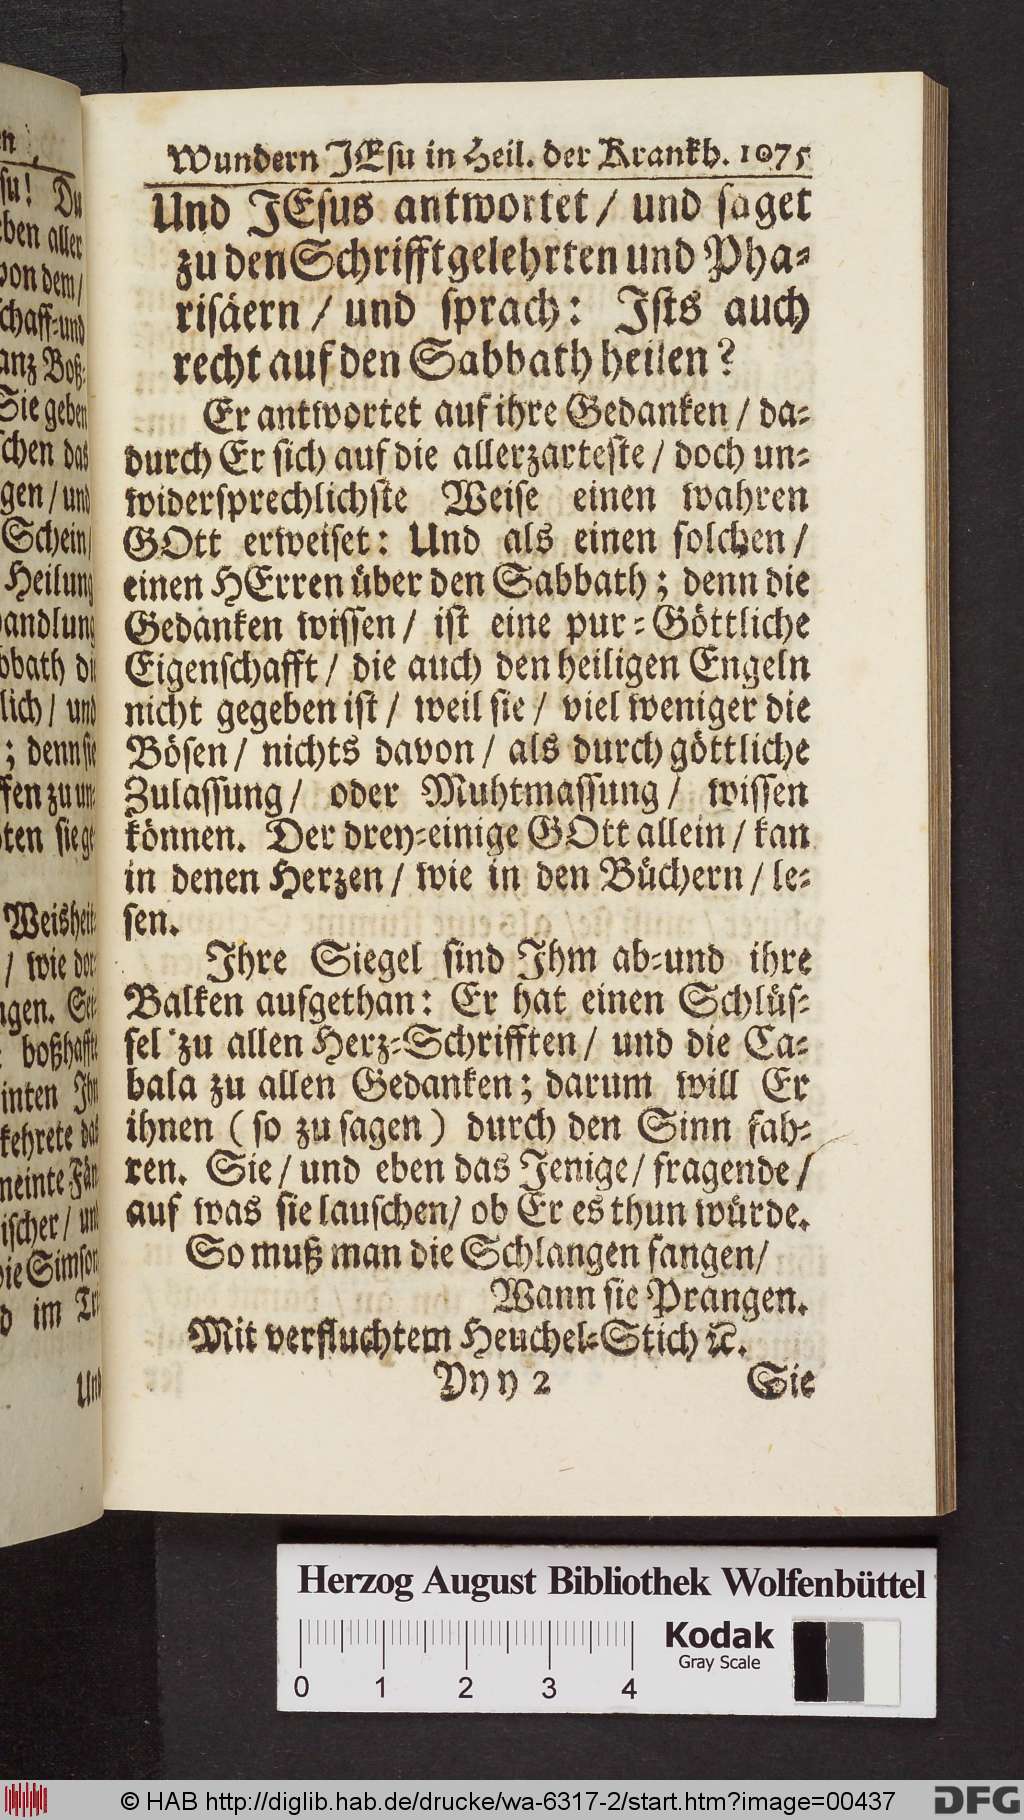 Wundern JEsu in Heil. der Krankh. 1075
Und JEsus antwortet / und saget
zu den Schrifftgelehrten und Pha-
risäern / und sprach: Ists auch
recht auf den Sabbath heilen?
Er antwortet auf ihre Gedanken / da-
durch Er sich auf die allerzarteste / doch un-
widersprechlichste Weise einen wahren
GOtt erweiset: Und als einen solchen /
einen HErren über den Sabbath; denn die
Gedanken wissen / ist eine pur-Göttliche
Eigenschafft / die auch den heiligen Engeln
nicht gegeben ist / weil sie / viel weniger die
Bösen / nichts davon / als durch göttliche
Zulassung / oder Muhtmassung / wissen
können. Der drey-einige GOtt allein / kan
in denen Herzen / wie in den Büchern / le-
sen.
Ihre Siegel sind Ihm ab-und ihre
Balken aufgethan: Er hat einen Schlüs-
sel zu allen Herz-Schrifften / und die Ca-
bala zu allen Gedanken; darum will Er
ihnen (so zu sagen) durch den Sinn fah-
ren. Sie / und eben das Jenige / fragende /
auf was sie lauschen / ob Er es thun würde.
So muß man die Schlangen fangen /
Wann sie Prangen.
Mit verfluchtem Heuchel-Stich ꝛc.
Yyy 2 Sie
su! Du
eben aller
von dem /
schaff-und
anz Boß-
Sie geben
schen das
gen / und
Schein /
Heilung
andlung
lich / und
; denn sie
Weisheit
/ wie
boßhaffte
Und
Herzog August Bibliothek Wolfenbüttel
Kodak
Gray Scale
0 1 2 3 4
© HAB http://diglib.hab.de/drucke/wa-6317-2/start.htm?image=00437
DFG